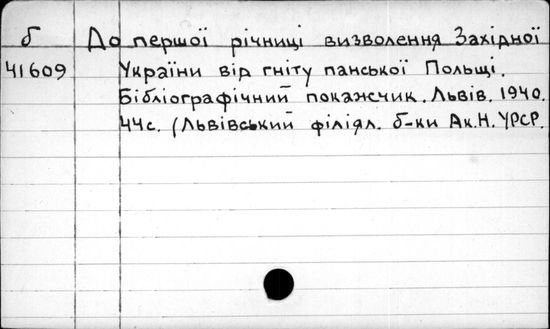 б До першої річниці визволення Західної
41609 України від гніту панської Польщі.
Бібліографічний покажчик. Львів. 1940.
44с. (Львівський філіял. б-ки Ак.Н. УРСР.